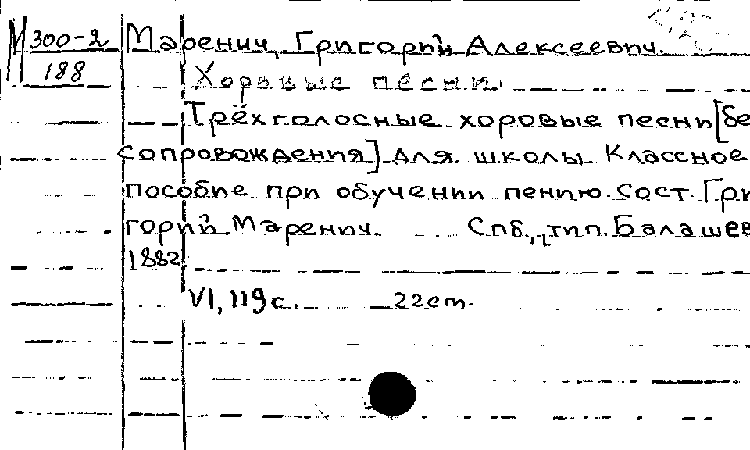 М 300-2
188
Маренич, Григорий Алексеевич.
Хоровые песни.
Трёхголосные хоровые песни [бе
сопровождения] для школы. Классное
пособие при обучении пению. Сост. Гри
горий Маренич. Спб., тип. Балашев
1882
VI, 119 с. 22 cm.